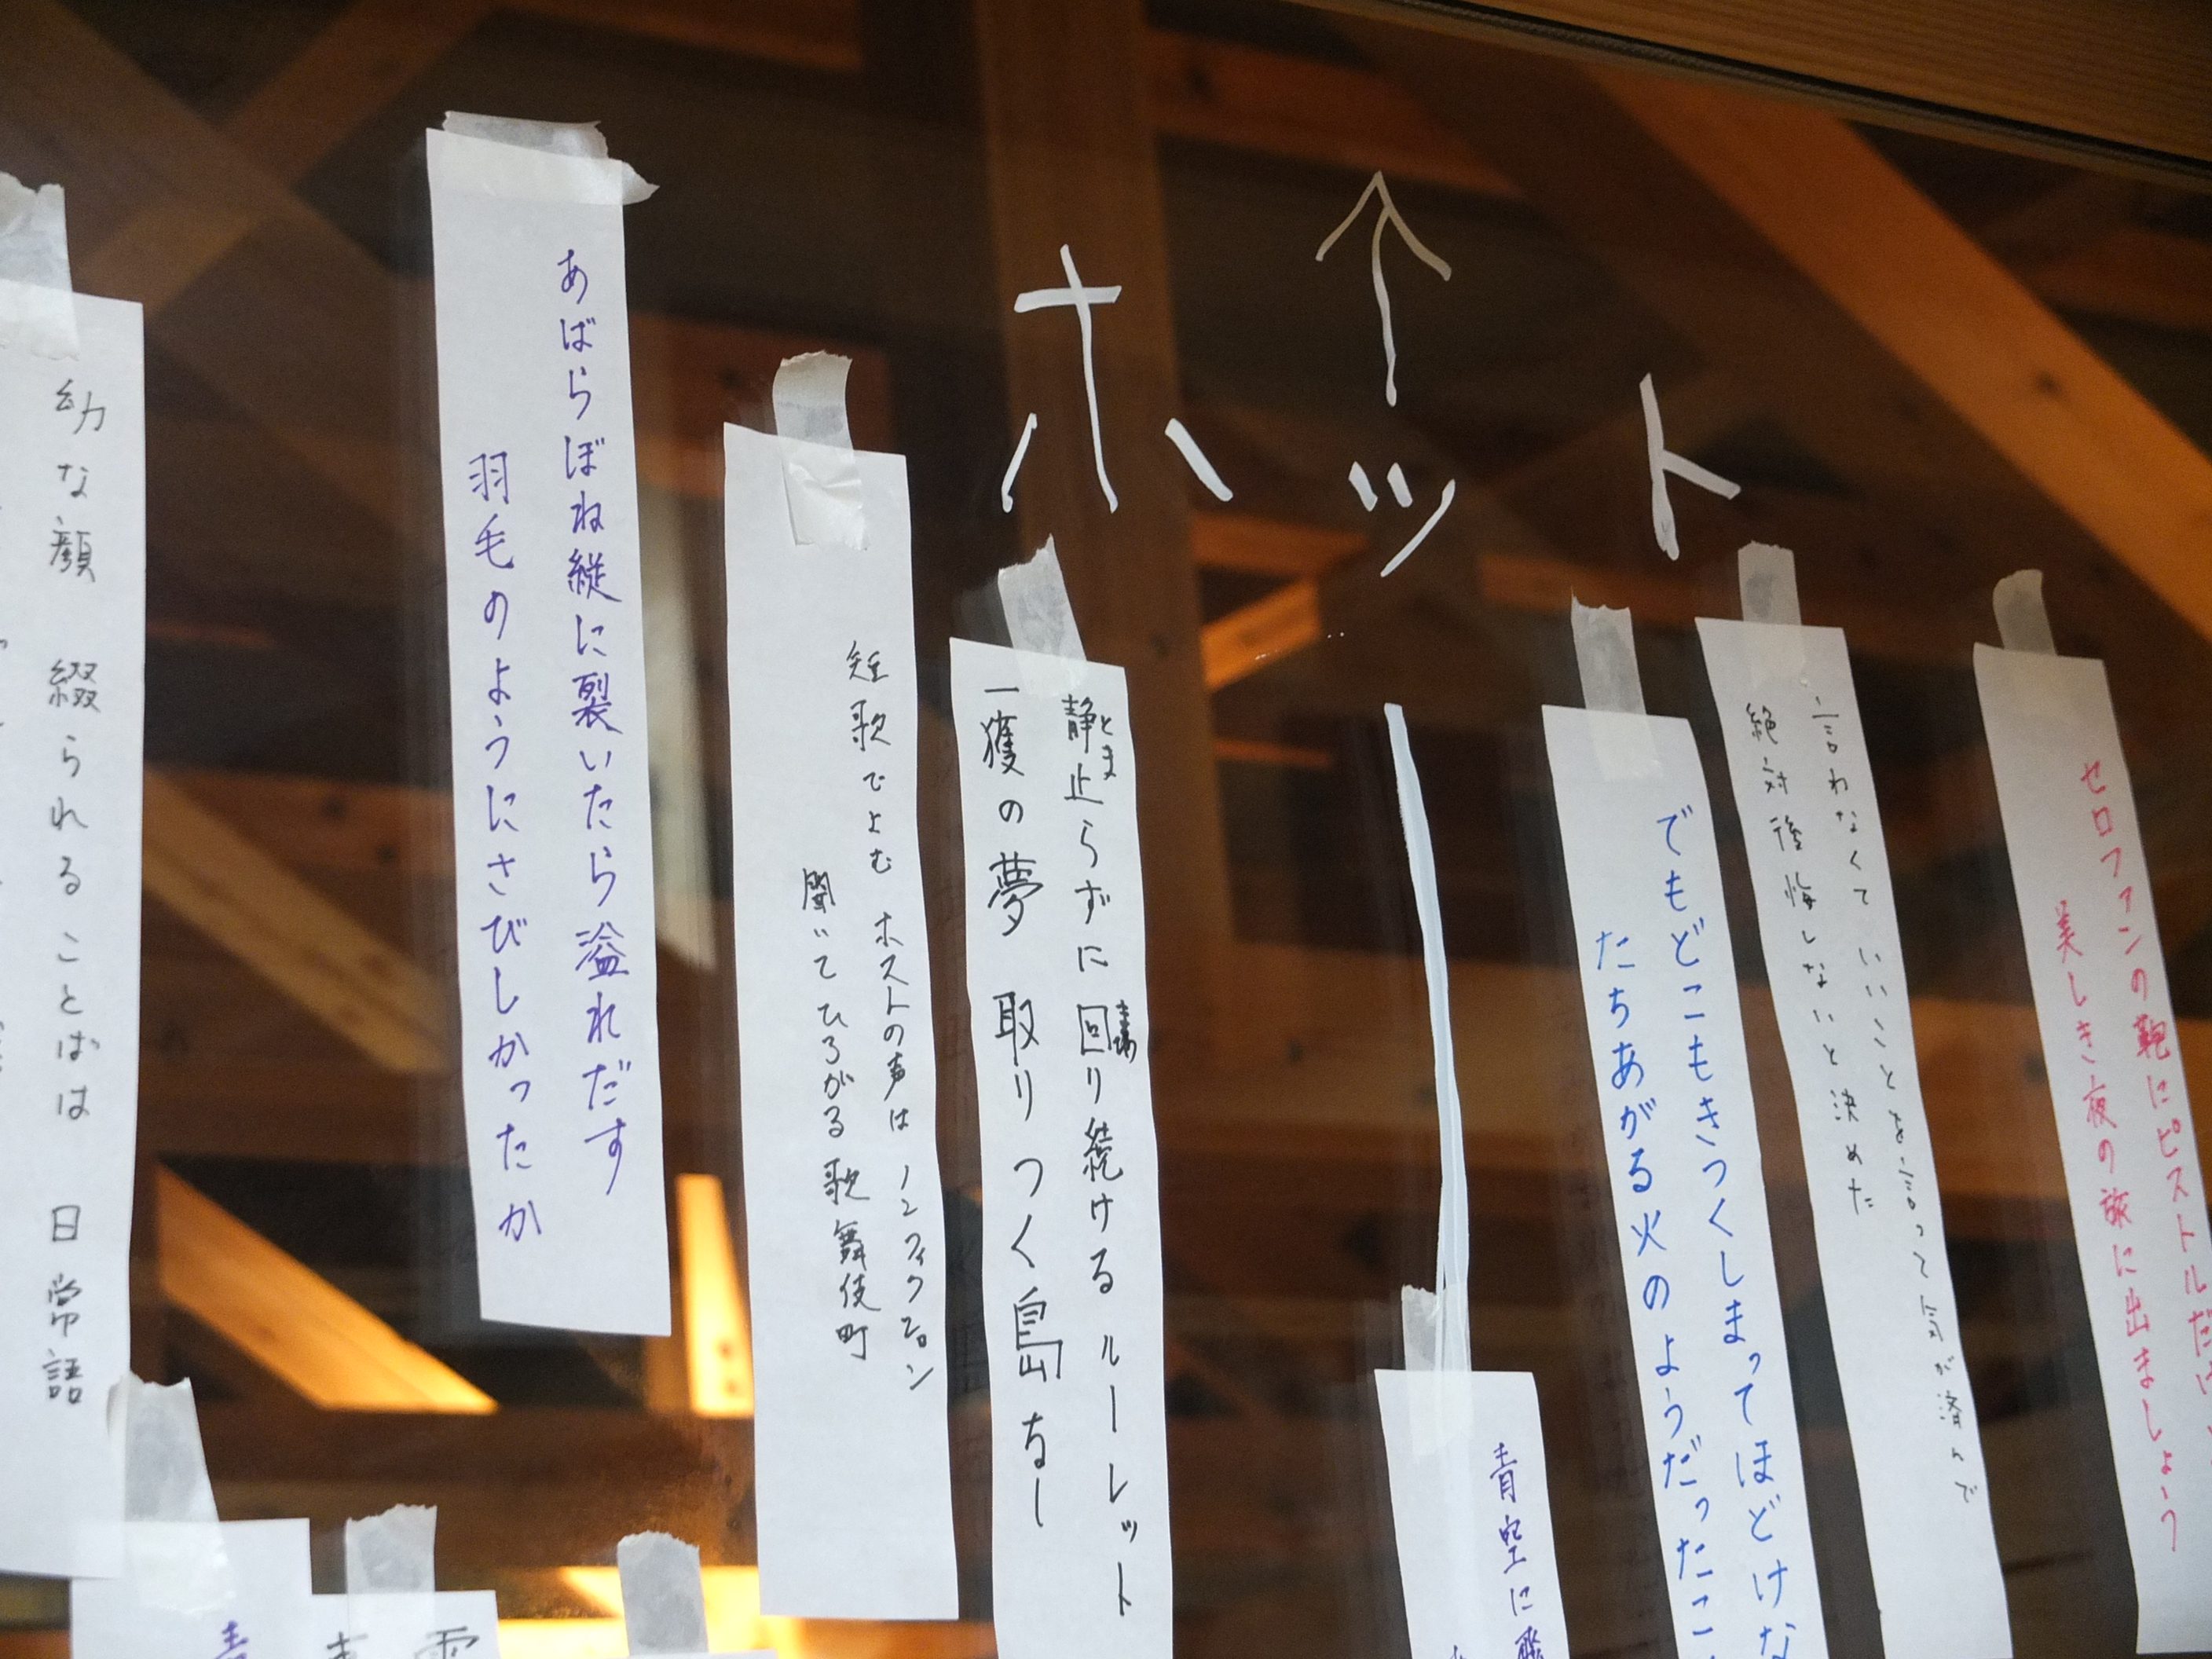 ホット
セロファンの鞄にピストルだけ
美しき夜の旅に出ましょう
言わなくていいことを言って気が済んで
絶対後悔しないと決めた
でもどこもきつくしまってほどけな
たちあがる火のようだったこ
青空に飛
静止らずに回り続けるルーレット
とま
一獲の夢 取りつく島なし
短歌でよむ ホストの声は ノンフィクション
聞いてひろがる 歌舞伎町
あばらぼね縦に裂いたら溢れだす
羽毛のようにさびしかったか
幼な顔 綴られることばは 日常語
青
雲